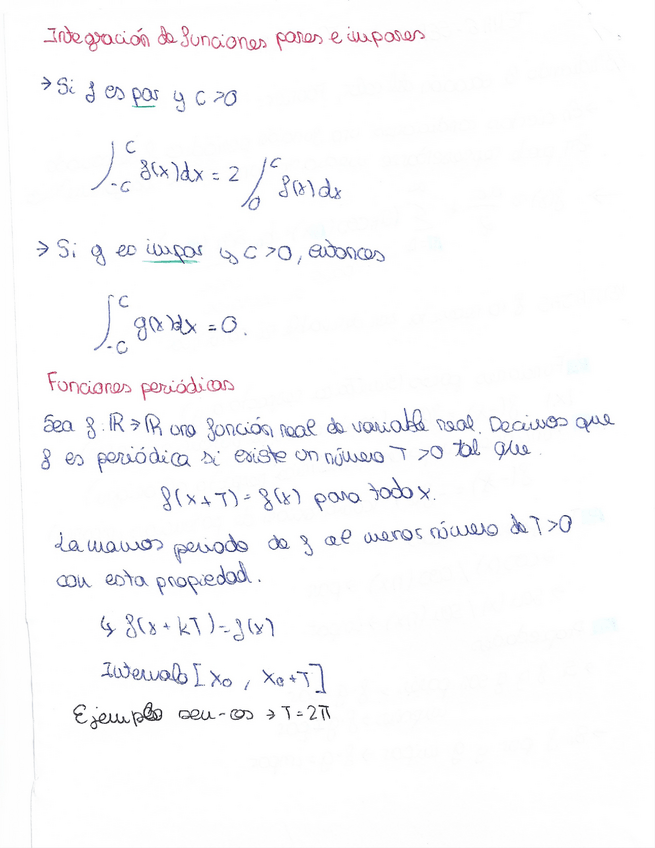 Integración de funciones pares e impares
→ Si f es par y C>0
∫_{-C}^{C} f(x)dx = 2 ∫_{0}^{C} f(x)dx
→ Si g es impar y C>0, entonces
∫_{-C}^{C} g(x)dx = 0.
Funciones periódicas
Sea f: ℝ→ℝ una función real de variable real. Decimos que
f es periódica si existe un número T>0 tal que.
f(x+T)=f(x) para todo x.
Llamamos periodo de f al menos número de T>0
con esta propiedad.
↳ f(x+kT)=f(x)
Intervalo [x₀, x₀+T]
Ejemplo sen-cos → T=2π